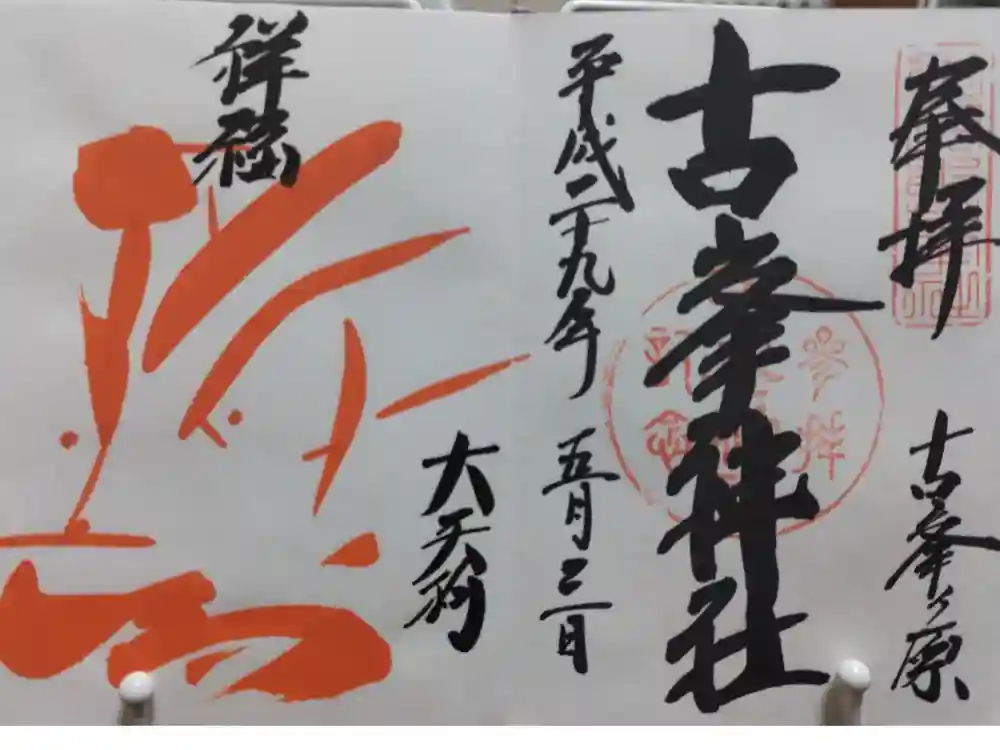 奉拝
古峯ヶ原
古峯神社
平成二十九年 五月三日
大天狗
祥福